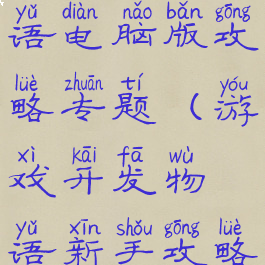 yǔ diàn nǎo bǎn gōng
语电脑版攻
lüè zhuān tí yóu
略专题（游
xì kāi fā wù
戏开发物
yǔ xīn shǒu gōng lüè
语新手攻略